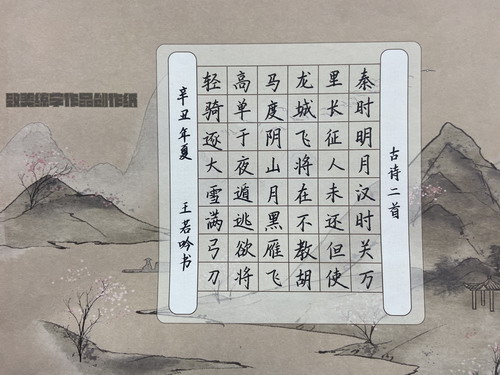 古诗二首
秦时明月汉时关万
里长征人未还但使
龙城飞将在不教胡
马度阴山月黑雁飞
高单于夜遁逃欲将
轻骑逐大雪满弓刀
辛丑年夏 王若吟书
作品创作纸